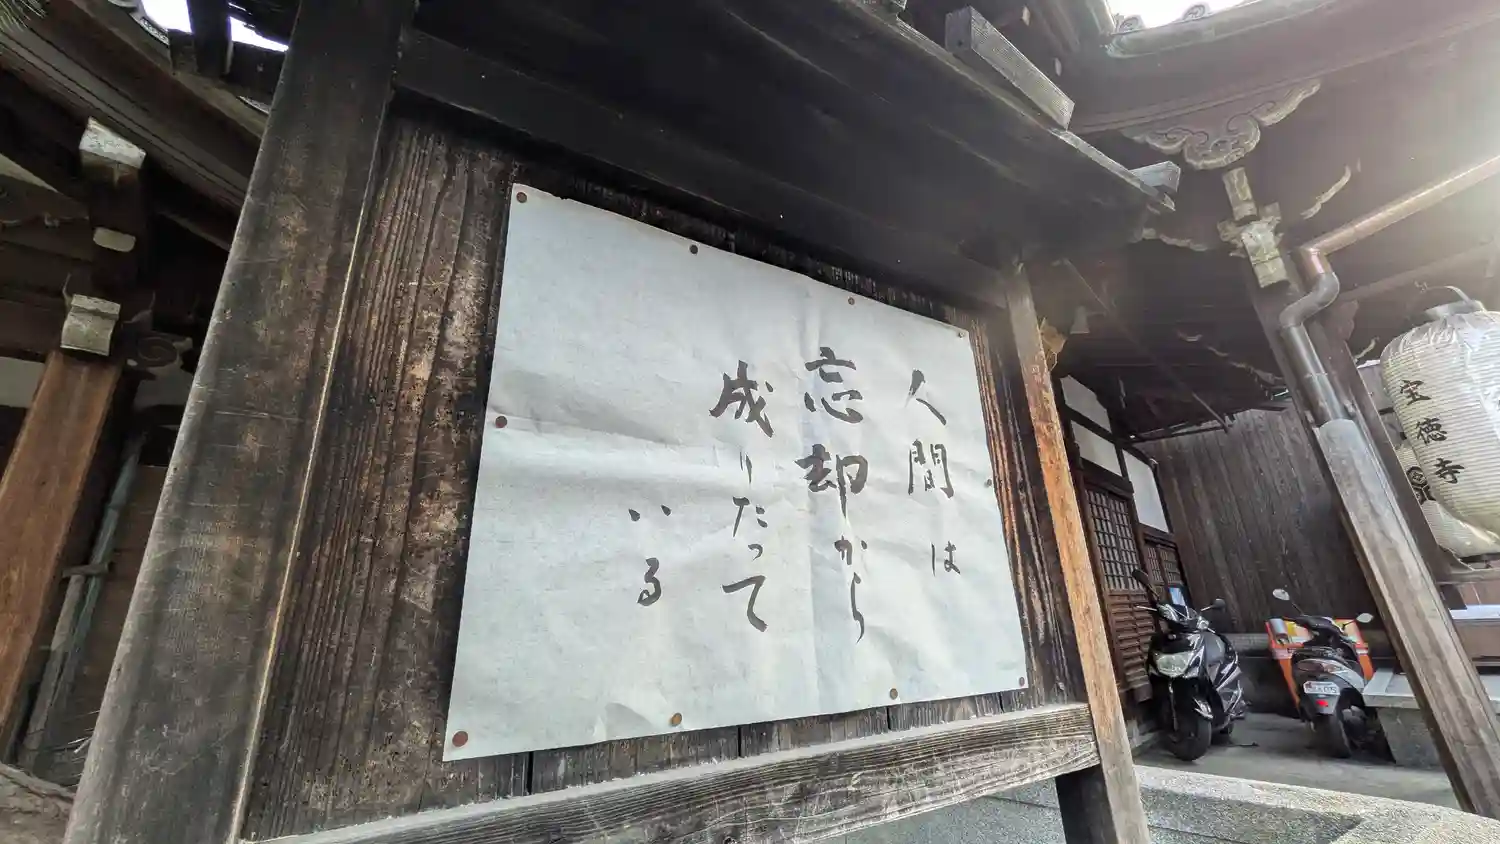 人間は
忘却から
成りたって
いる
宝徳寺